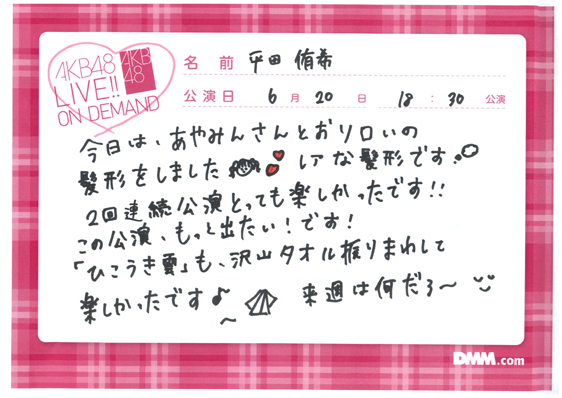 AKB48
LIVE!!
ON DEMAND
AKB
48
名前 平田 侑希
公演日 6月20日 18:30公演
今日は、あやみんさんとおソロいの
髪形をしました レアな髪形です
2回連続公演とっても楽しかったです!!
この公演、もっと出たい!です!
「ひこうき雲」も、沢山タオル振りまわして
楽しかったです♪
〜 来週は何だろ〜
DMM.com